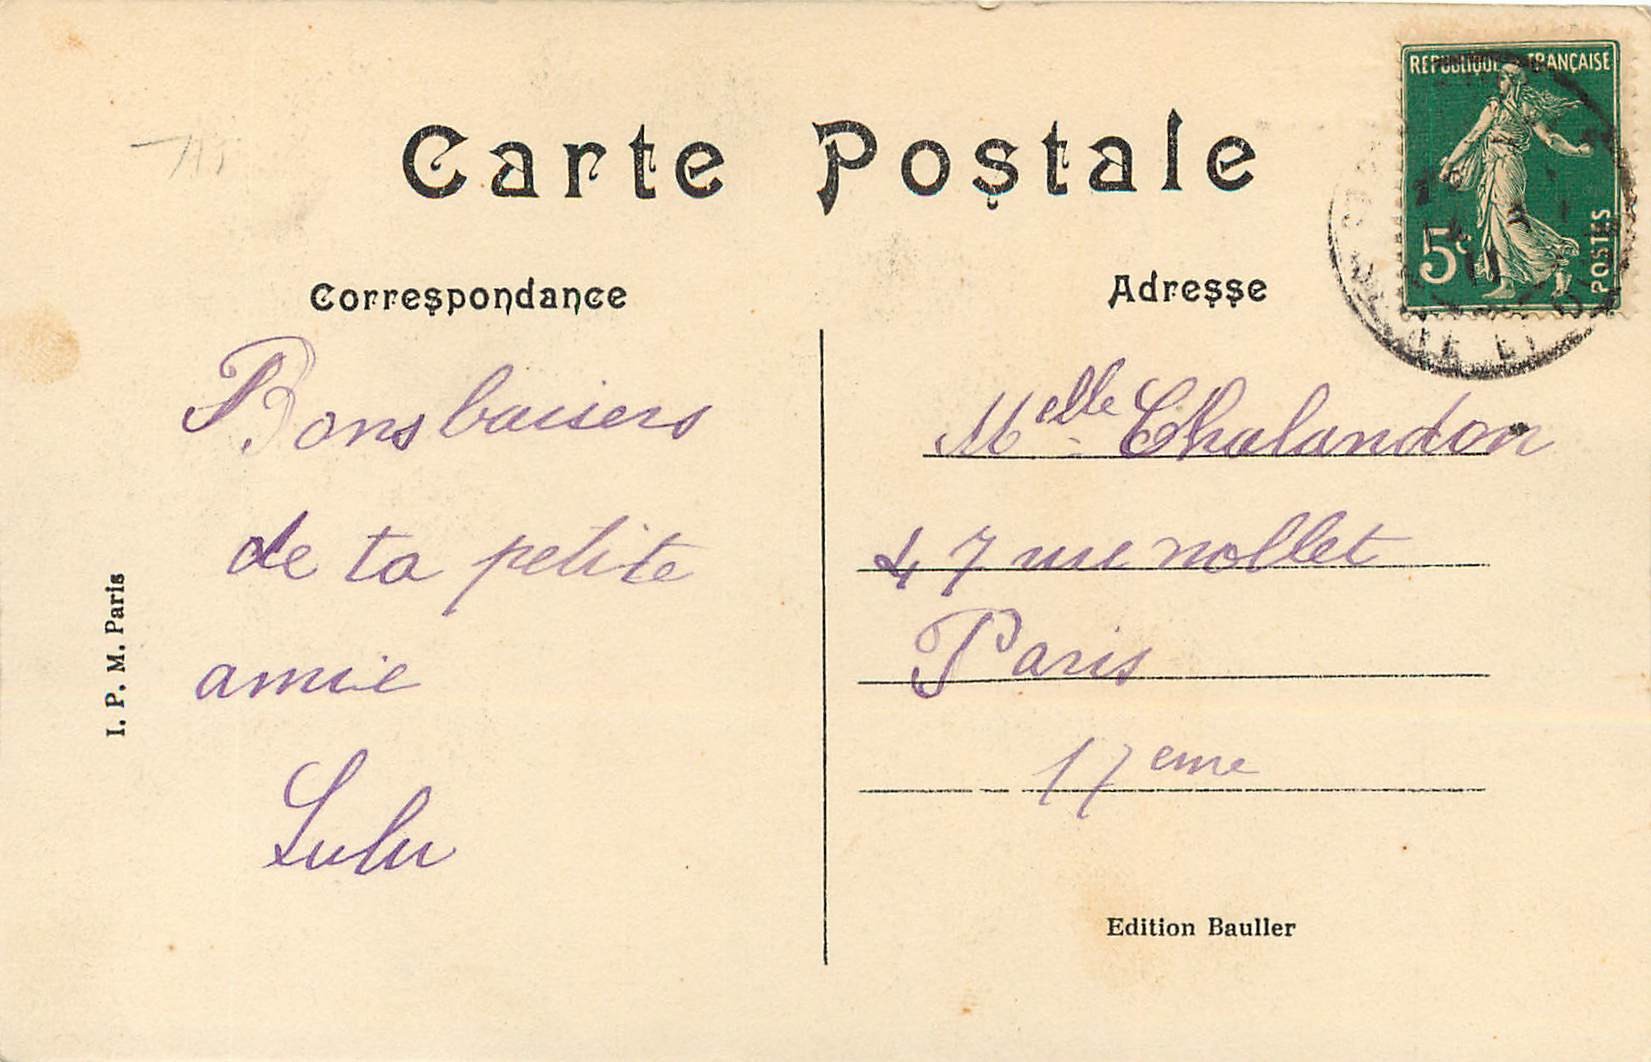 RÉPUBLIQUE FRANÇAISE
5c
POSTES
Carte Postale
Correspondance
Adresse
Bons baisers
de ta petite
amie
Lulu
Melle Chalandon
47 rue nollet
Paris
17eme
I. P. M. Paris
Edition Bauller